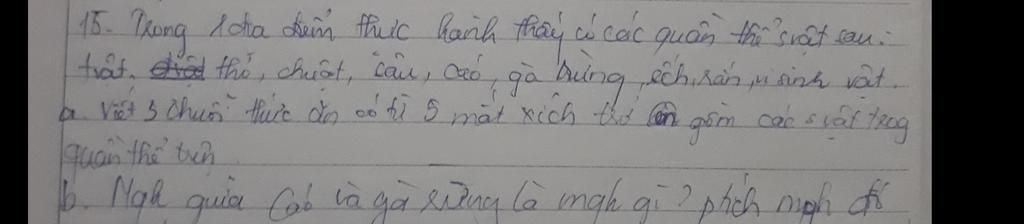 15. Trong 1 địa điểm thực hành thấy có các quần thể svật sau:
tvật, thỏ, chuột, sâu, cáo, gà rừng, ếch, rắn, vi sinh vật.
a. Viết 3 chuỗi thức ăn có từ 5 mắt xích trở lên gồm các svật trog
quần thể trên
b. Mqh giữa cáo và gà rừng là mqh gì? phtích mqh đó